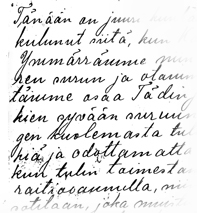 Tänään on juuri
kulunut siitä, kun
Ymmärrämme
nen surun ja otam
täimme osaa Täding
kien syvään suruun
gen kuolemasta tul
hiä ja odottamatta
kun tulin toimesta
raitiovaunulla, mi
sotilaan, joka muist